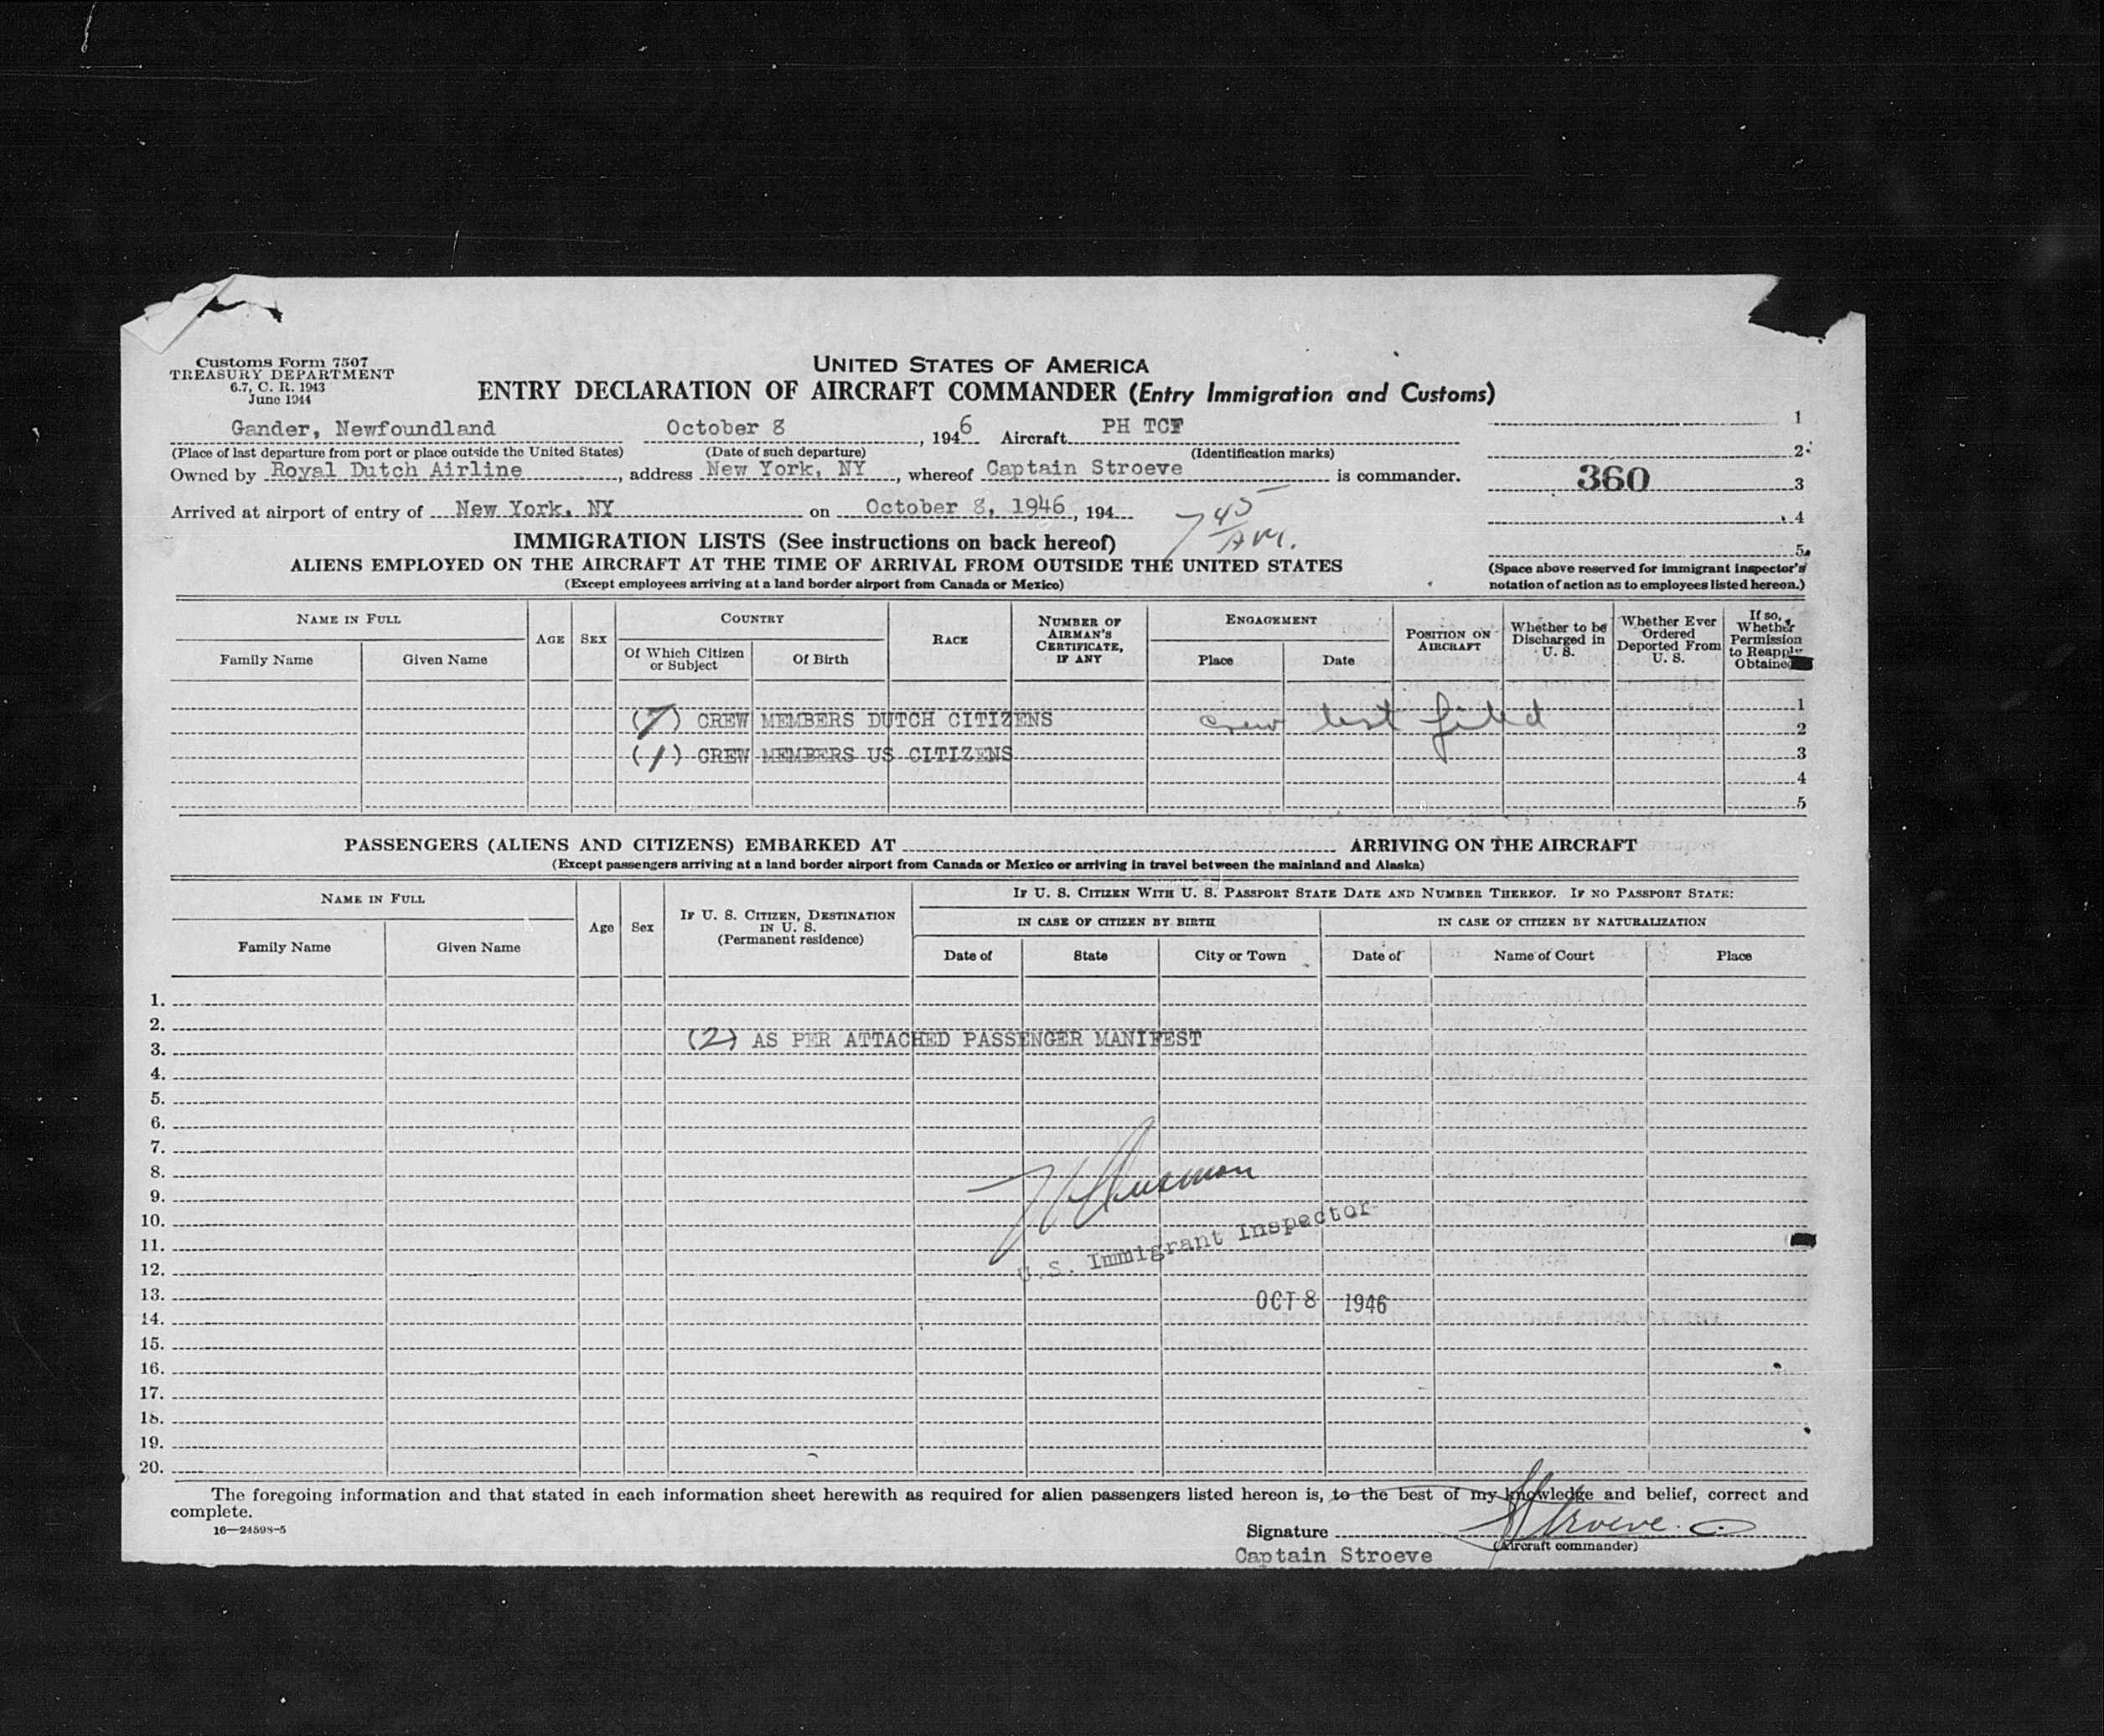 Customs Form 7507
TREASURY DEPARTMENT
6.7, C. R. 1943
June 1944
UNITED STATES OF AMERICA
ENTRY DECLARATION OF AIRCRAFT COMMANDER (Entry Immigration and Customs)
Gander, Newfoundland October 8, 1946 Aircraft PH TCF
(Place of last departure from port or place outside the United States) (Date of such departure) (Identification marks)
Owned by Royal Dutch Airline, address New York, NY, whereof Captain Stroeve is commander.
Arrived at airport of entry of New York, NY on October 8, 1946, 194
7 45 AM.
1
2
360 3
4
5
(Space above reserved for immigrant inspector's
notation of action as to employees listed hereon.)
IMMIGRATION LISTS (See instructions on back hereof)
ALIENS EMPLOYED ON THE AIRCRAFT AT THE TIME OF ARRIVAL FROM OUTSIDE THE UNITED STATES
(Except employees arriving at a land border airport from Canada or Mexico)
NAME IN FULL
Family Name Given Name
AGE SEX
COUNTRY
Of Which Citizen or Subject Of Birth
RACE
NUMBER OF AIRMAN'S CERTIFICATE, IF ANY
ENGAGEMENT
Place Date
POSITION ON AIRCRAFT
Whether to be Discharged in U. S.
Whether Ever Ordered Deported From U. S.
If so, Whether Permission to Reapply Obtained
1
(7) CREW MEMBERS DUTCH CITIZENS crew list filed 2
(1) CREW MEMBERS US CITIZENS 3
4
5
PASSENGERS (ALIENS AND CITIZENS) EMBARKED AT ARRIVING ON THE AIRCRAFT
(Except passengers arriving at a land border airport from Canada or Mexico or arriving in travel between the mainland and Alaska)
NAME IN FULL
Family Name Given Name
Age Sex
IF U. S. CITIZEN, DESTINATION IN U. S.
(Permanent residence)
IF U. S. CITIZEN WITH U. S. PASSPORT STATE DATE AND NUMBER THEREOF. IF NO PASSPORT STATE:
IN CASE OF CITIZEN BY BIRTH IN CASE OF CITIZEN BY NATURALIZATION
Date of State City or Town Date of Name of Court Place
1.
2.
3. (2) AS PER ATTACHED PASSENGER MANIFEST
4.
5.
6.
7.
8.
9.
10.
11.
U.S. Immigrant Inspector
12.
13. OCT 8 1946
14.
15.
16.
17.
18.
19.
20.
The foregoing information and that stated in each information sheet herewith as required for alien passengers listed hereon is, to the best of my knowledge and belief, correct and
complete.
16—24598-5
Signature Stroeve.
(Aircraft commander)
Captain Stroeve